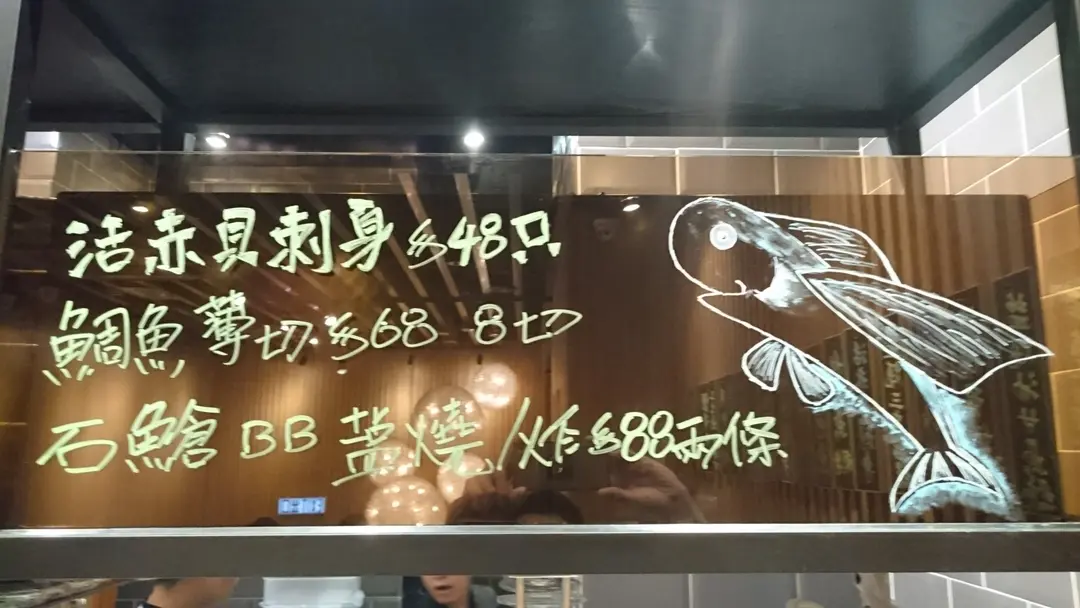 活赤貝刺身 $48只
鯛魚薄切 $68 8切
石鱠BB 盐燒/炸 $88兩條